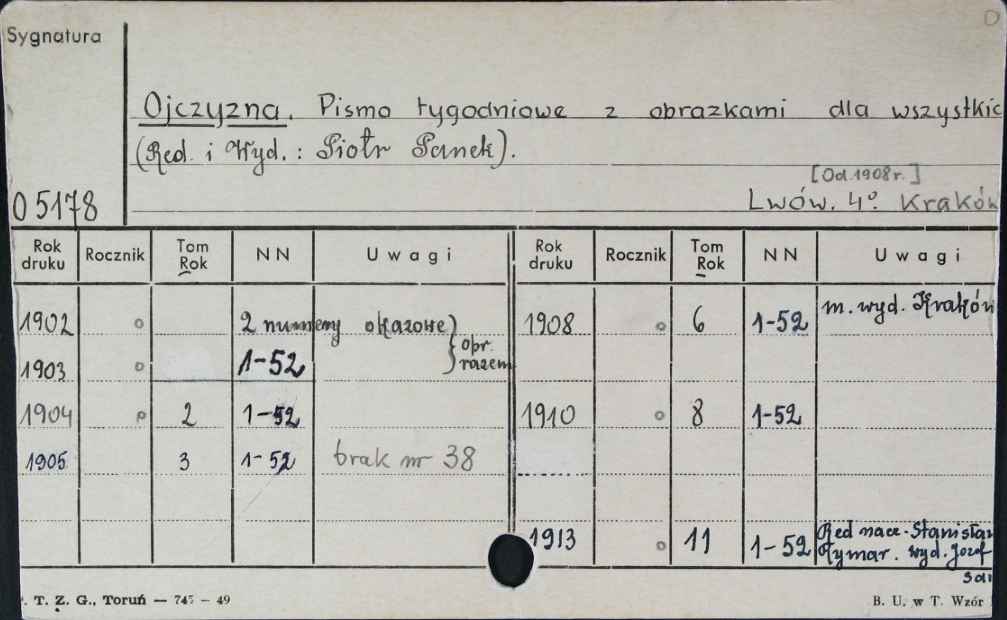 Sygnatura
Ojczyzna. Pismo tygodniowe z obrazkami dla wszystkic
(Red. i Wyd.: Piotr Panek).
[Od 1908 r.]
O 5178 Lwów. 4º. Kraków
Rok druku Rocznik Tom Rok NN Uwagi Rok druku Rocznik Tom Rok NN Uwagi
1902 o 2 numery okazowe) 1908 o 6 1-52 m. wyd. Kraków
1903 o 1-52 } opr. razem
1904 o 2 1-52 1910 o 8 1-52
1905 3 1-52 brak nr 38
1913 o 11 1-52 Red nacz. Stanisław
Rymar. wyd. Józef
. T. Z. G., Toruń — 745 — 49 B. U. w T. Wzór